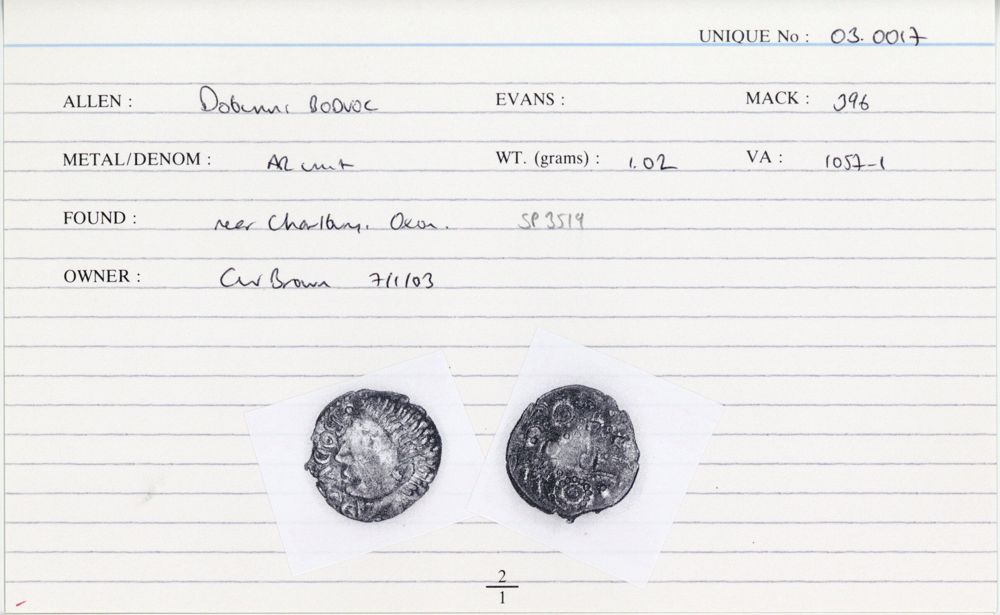 UNIQUE No : 03.0017
ALLEN : Dobunni BODVOC EVANS : MACK : 396
METAL/DENOM : AR unit WT. (grams) : 1.02 VA : 1057-1
FOUND : near Charlbury, Oxon. SP 3519
OWNER : CW Brown 7/1/03
2
1